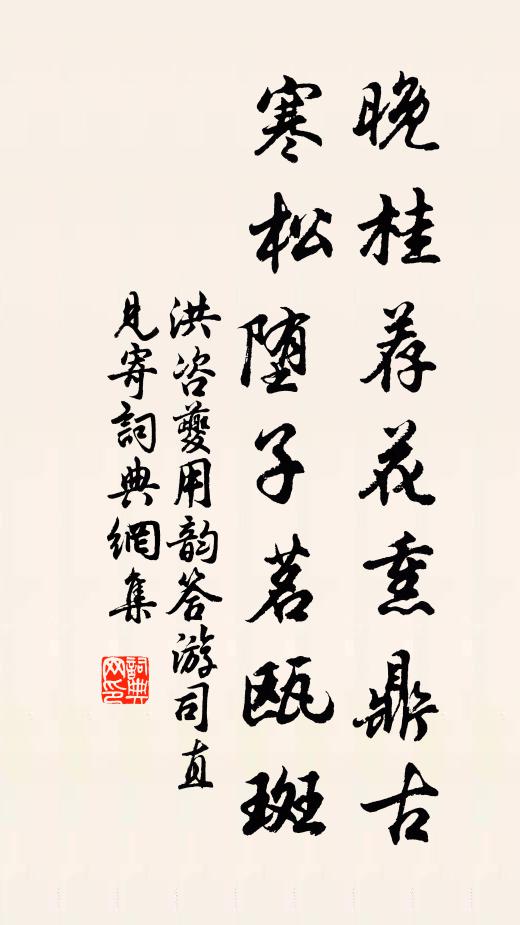 晚桂荐花熏鼎古
寒松堕子茗瓯斑
洪咨夔用韵答游司直
見寄詞典網集
詞典网印